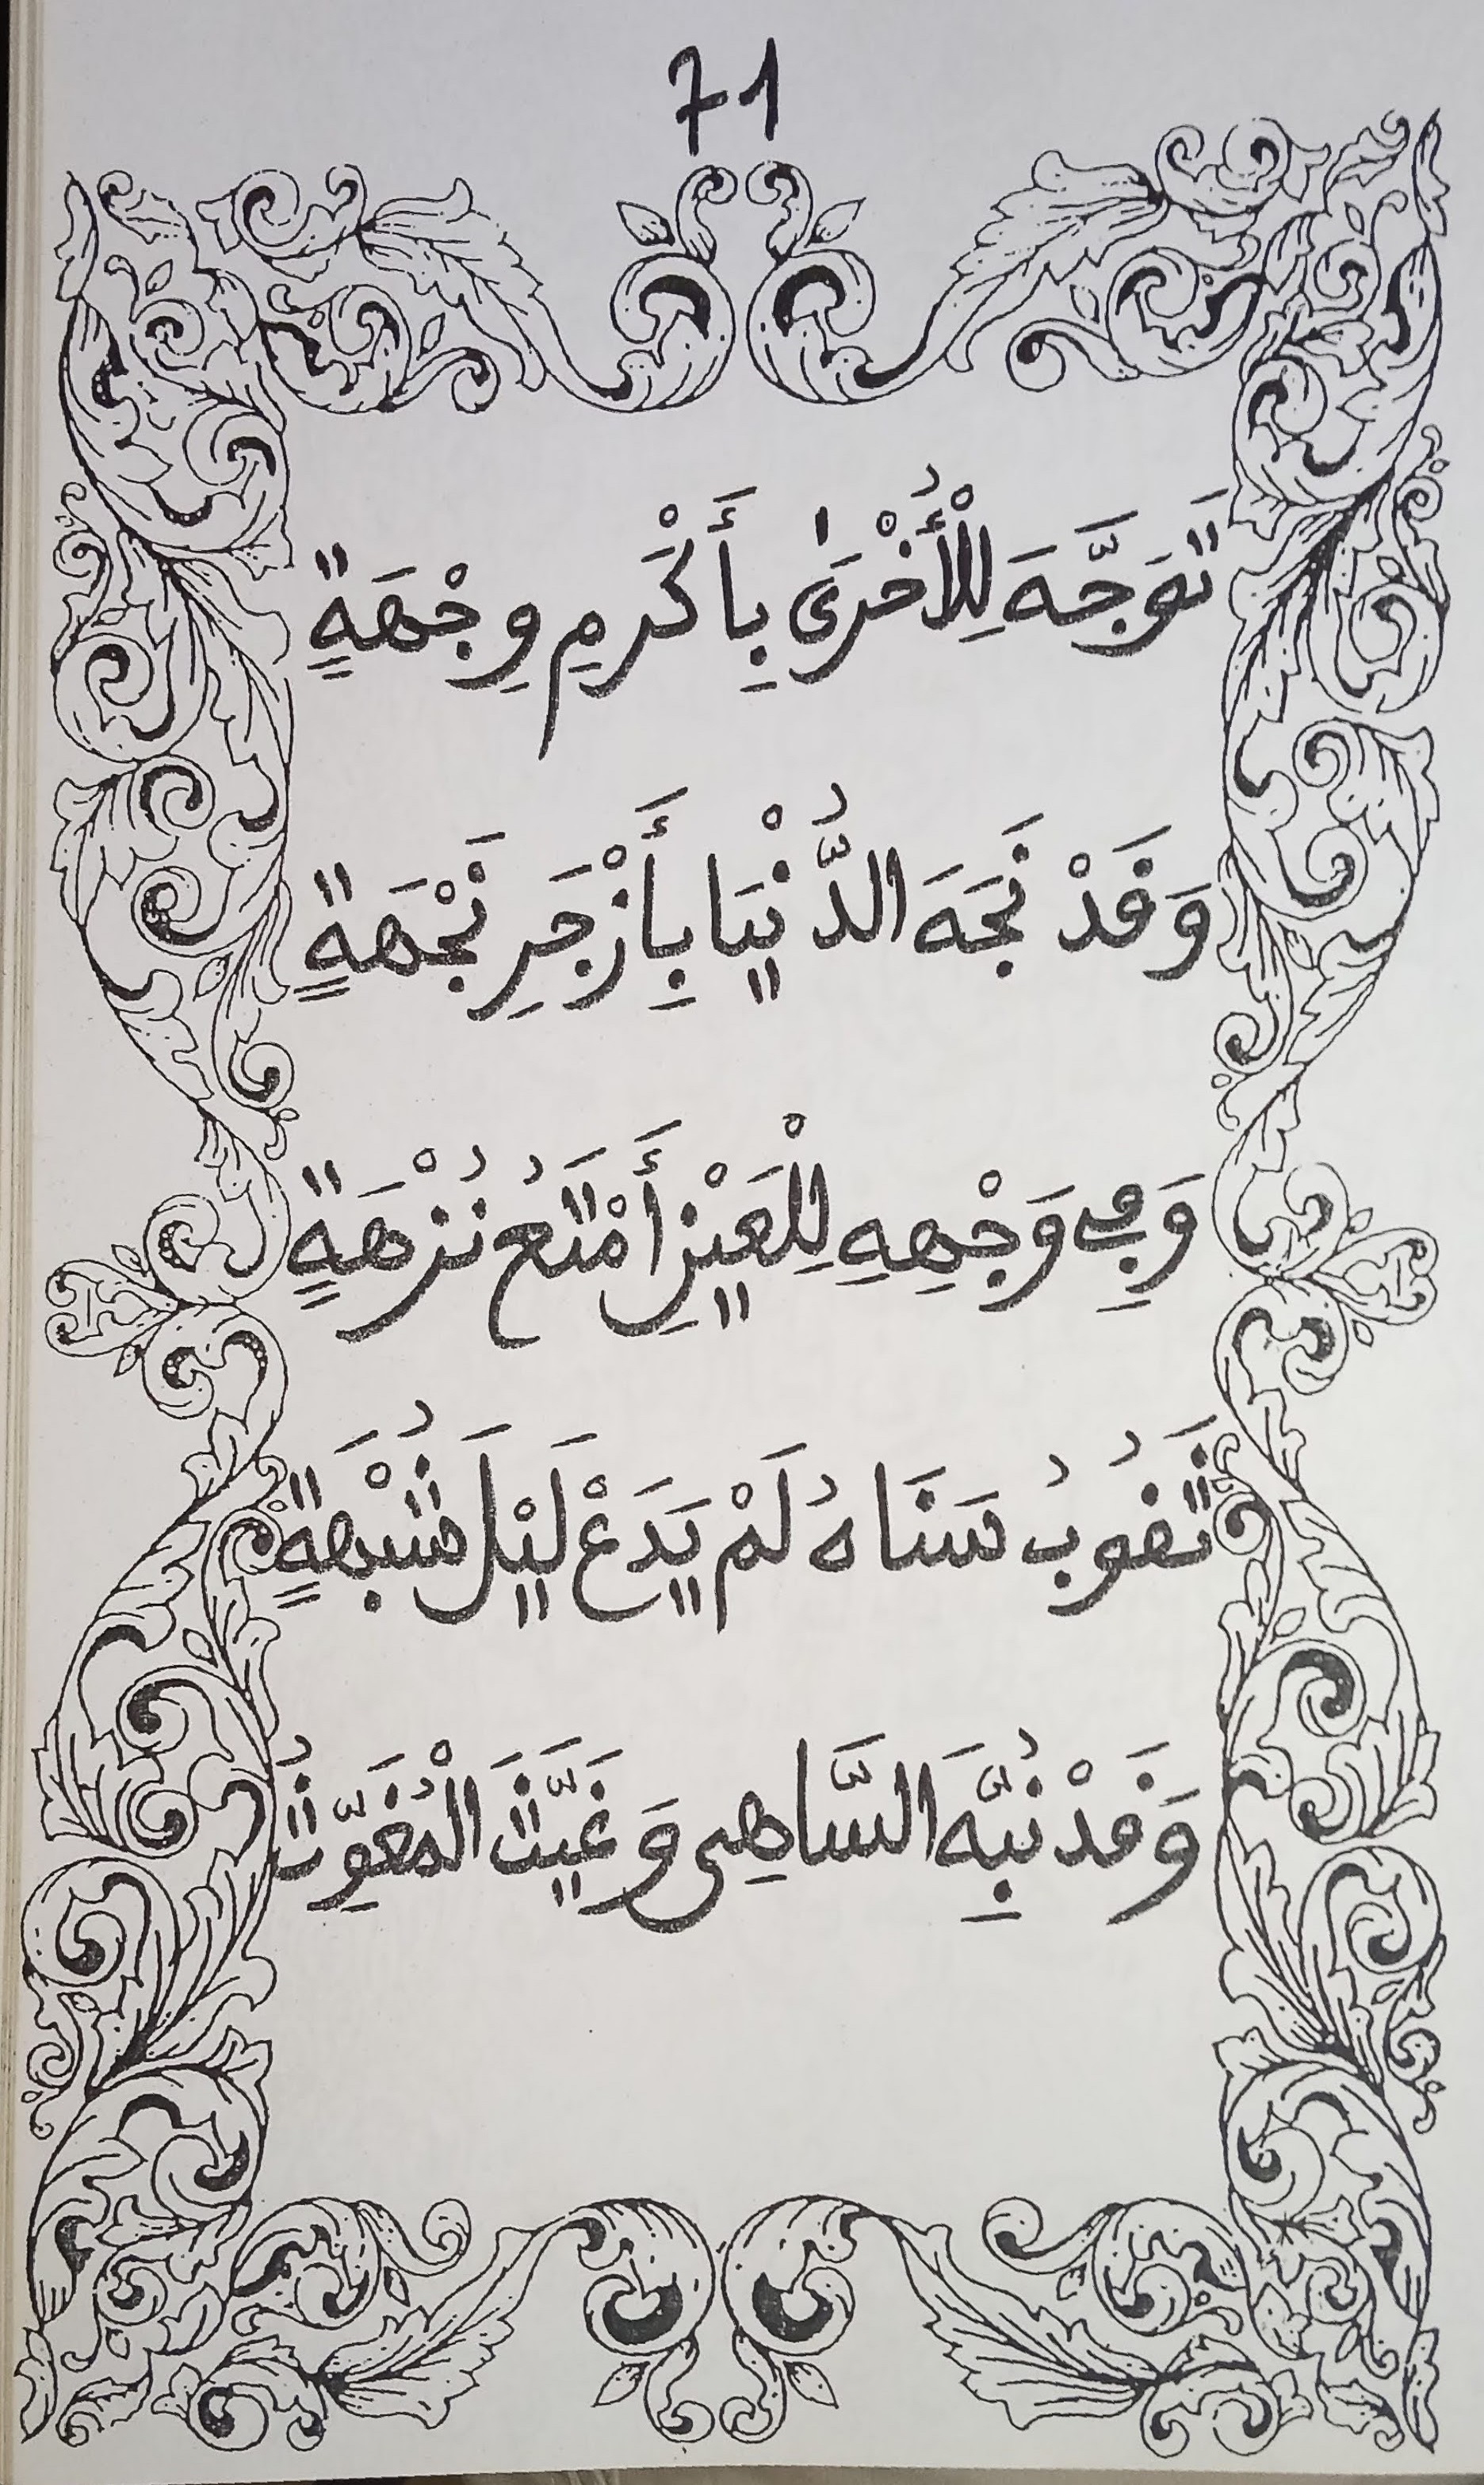 71
تَوَجَّهَ لِلْأُخْرَىٰ بِأَكْرَمِ وِجْهَةٍ
وَقَدْ نَجَهَ الدُّنْيَا بِأَزْجَرِ نَجْهَةٍ
وَفِي وَجْهِهِ لِلْعَيْنِ أَمْتَعُ نُزْهَةٍ
ثَقُوبُ سَنَاهُ لَمْ يَدَعْ لَيْلَ شُبْهَةٍ
وَقَدْ نُبِّهَ السَّاهِي وَغَيَّثَ الْمُغَوِّثُ